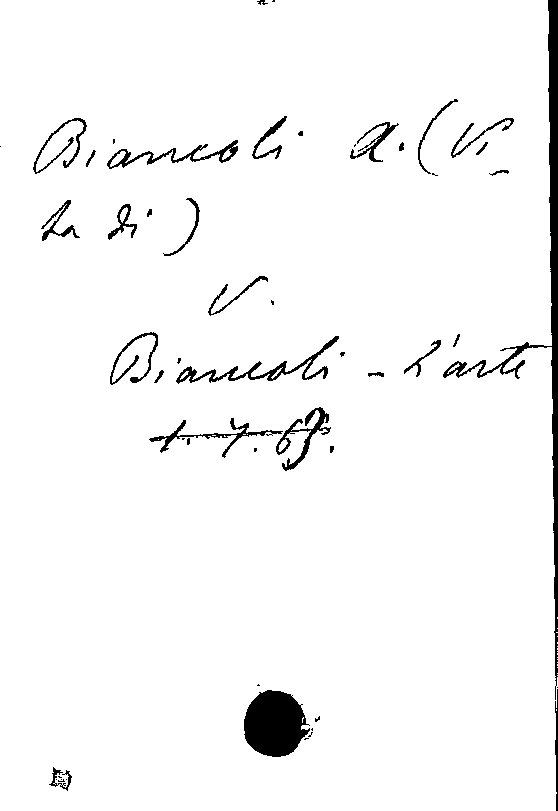 Biancoli A. (Vi-
ta di)
V.
Biancoli - L'arte